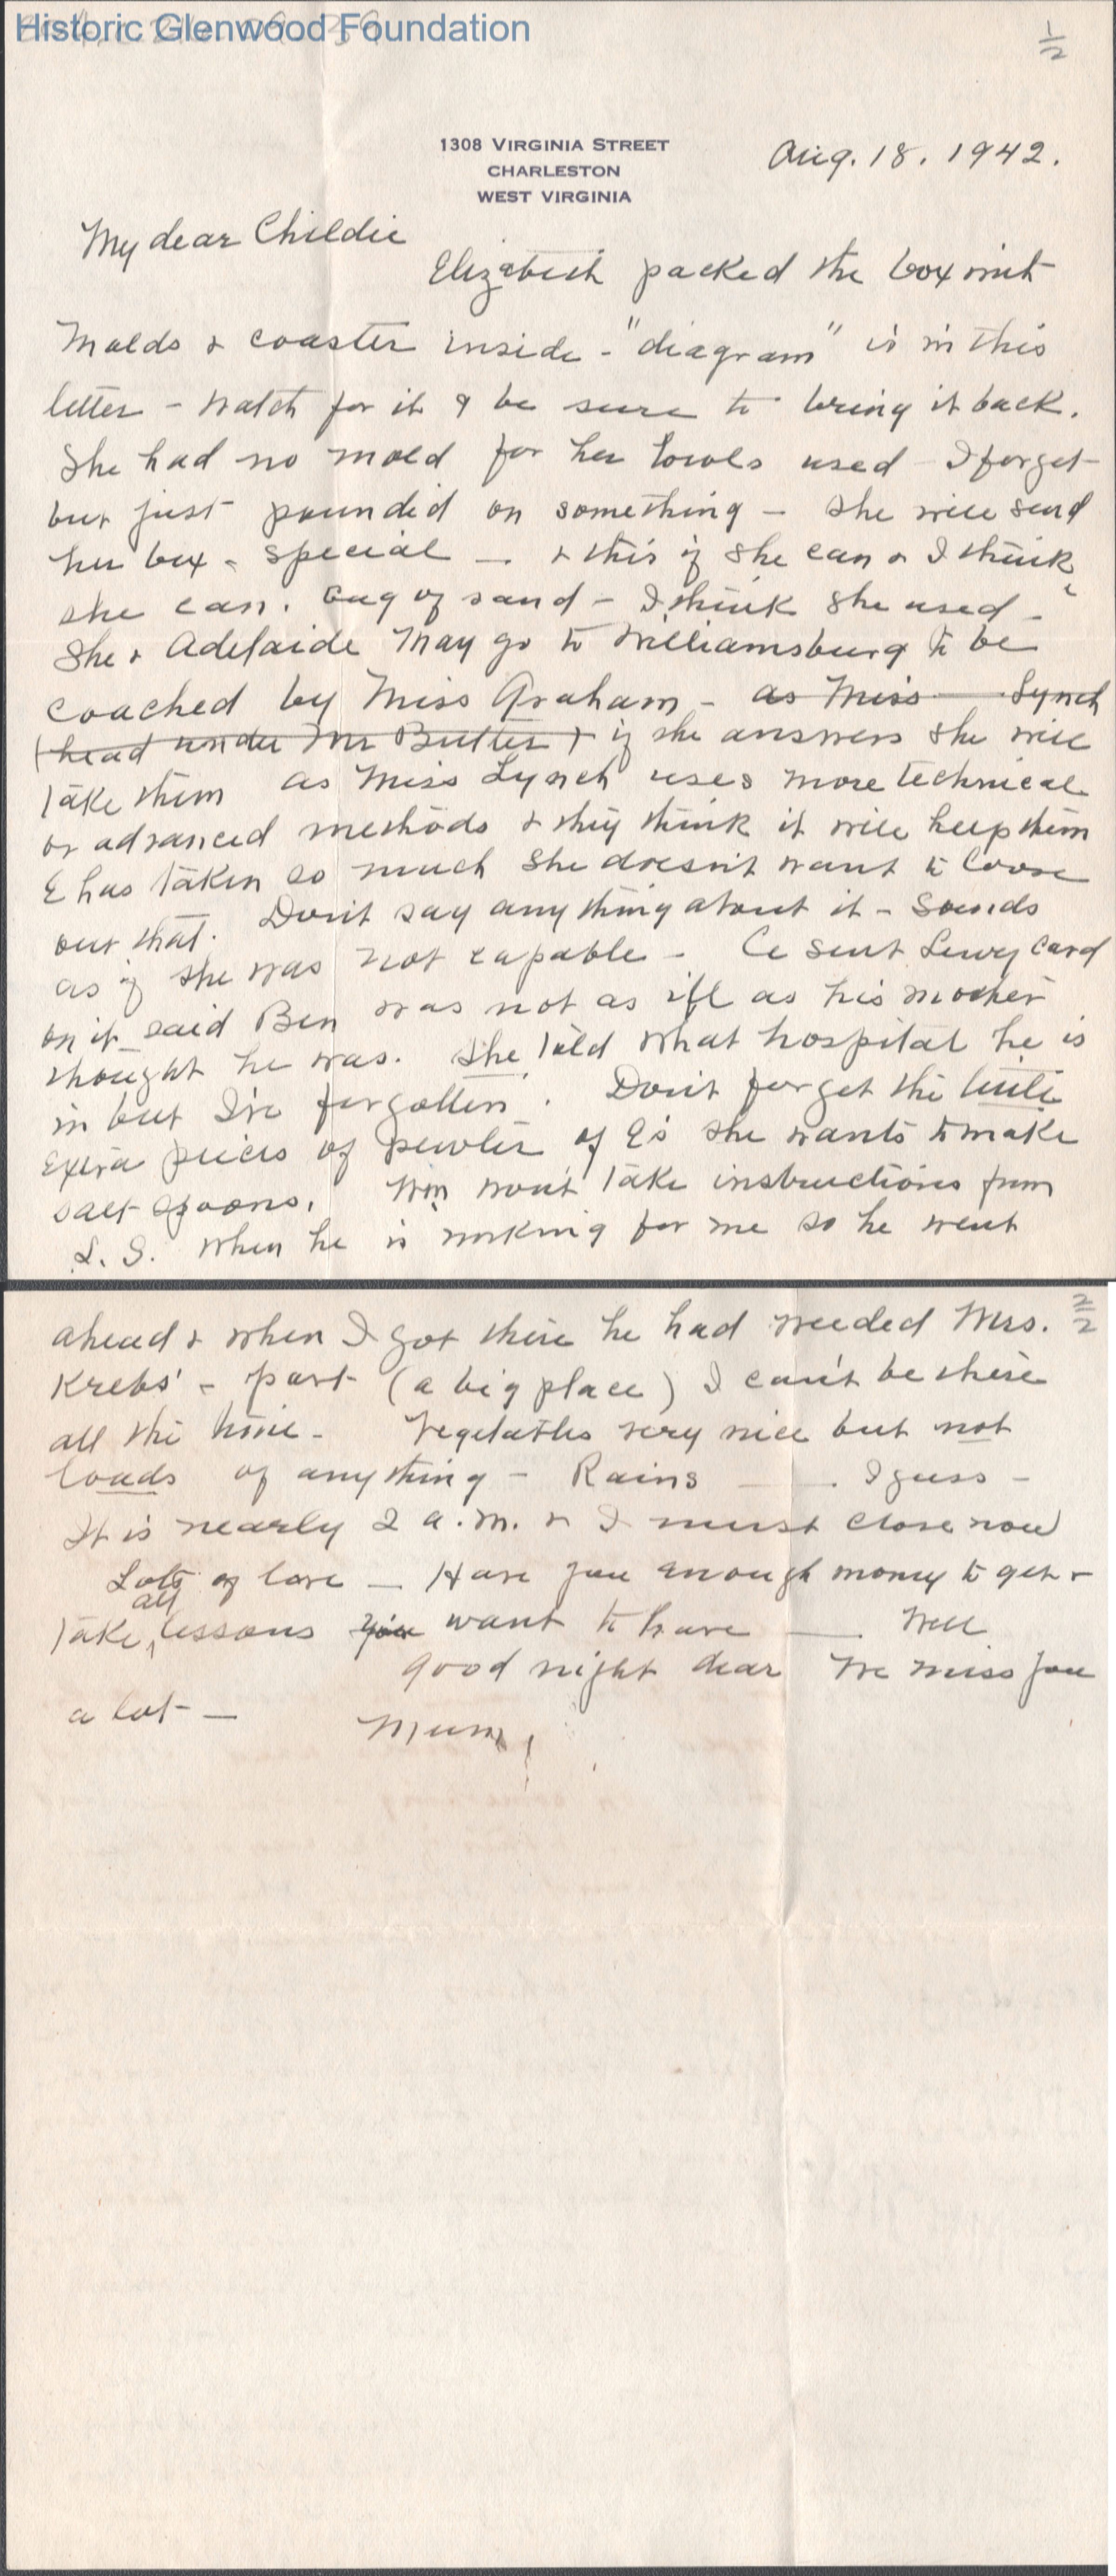 Historic Glenwood Foundation
1/2
1308 VIRGINIA STREET
CHARLESTON
WEST VIRGINIA
Aug. 18. 1942.
My dear Childie
Elizabeth packed the box with
molds & coaster inside - "diagram" is in this
letter - Watch for it & be sure to bring it back.
She had no mold for her bowls used I forget
but just pounded on something - she will send
her box - special - & this if she can & I think
she can. Bag of sand - I think she used -
She & Adelaide may go to Williamsburg to be
coached by Miss Graham - as Miss Lynch
(head under Mr Butler) & if she answers she will
take them as Miss Lynch uses more technical
or advanced methods & they think it will help them
E has taken so much she doesn't want to loose
out that. Don't say anything about it - Sounds
as if she was not capable - Ce sent Lewy card
on it said Ben was not as ill as his mother
thought he was. She told what hospital he is
in but I've forgotten. Don't forget the little
extra pieces of pewter of E's she wants to make
salt spoons. Wm won't take instructions from
L. S. when he is working for me so he went
2/2
ahead & when I got there he had weeded Mrs.
Krebs' - part (a big place) I can't be there
all the time - Vegetables very nice but not
loads of anything - Rains I guess -
It is nearly 2 a.m. & I must close now
Lots of love - Have you enough money to get &
take all lessons you want to have Well
good night dear We miss you
a lot -
Mum